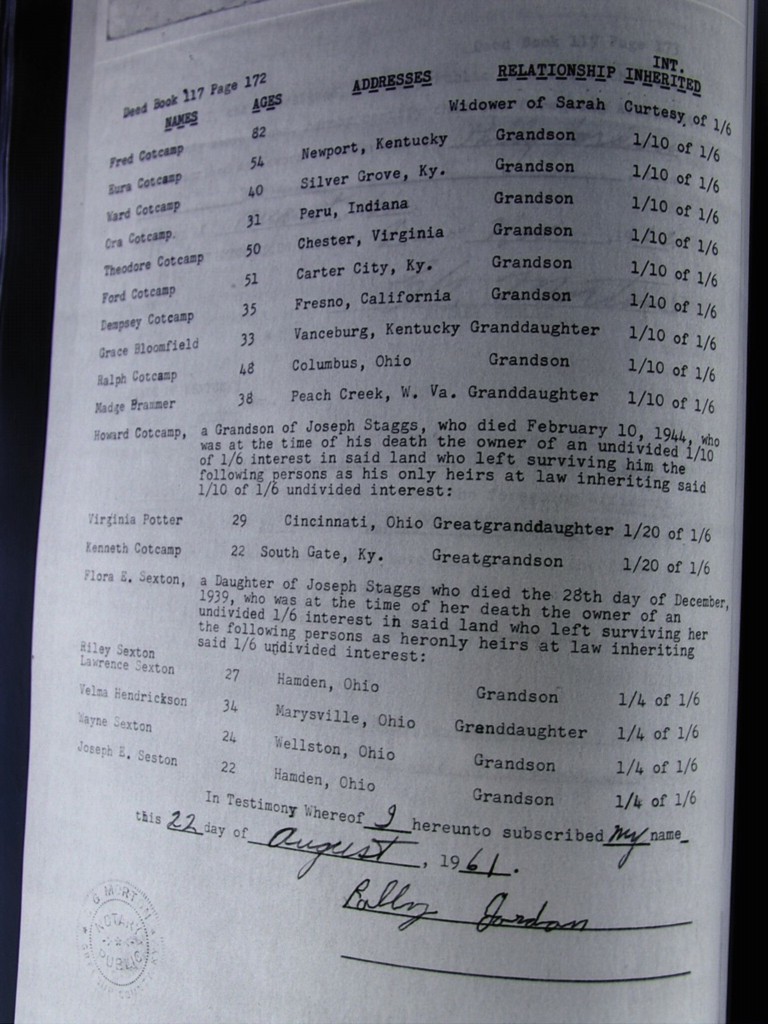 Deed Book 117 Page 172
NAMES AGES ADDRESSES RELATIONSHIP INT. INHERITED
Fred Cotcamp 82 Widower of Sarah Curtesy of 1/6
Eura Cotcamp 54 Newport, Kentucky Grandson 1/10 of 1/6
Ward Cotcamp 40 Silver Grove, Ky. Grandson 1/10 of 1/6
Ora Cotcamp. 31 Peru, Indiana Grandson 1/10 of 1/6
Theodore Cotcamp 50 Chester, Virginia Grandson 1/10 of 1/6
Ford Cotcamp 51 Carter City, Ky. Grandson 1/10 of 1/6
Dempsey Cotcamp 35 Fresno, California Grandson 1/10 of 1/6
Grace Bloomfield 33 Vanceburg, Kentucky Granddaughter 1/10 of 1/6
Ralph Cotcamp 48 Columbus, Ohio Grandson 1/10 of 1/6
Madge Brammer 38 Peach Creek, W. Va. Granddaughter 1/10 of 1/6
Howard Cotcamp, a Grandson of Joseph Staggs, who died February 10, 1944, who
was at the time of his death the owner of an undivided 1/10
of 1/6 interest in said land who left surviving him the
following persons as his only heirs at law inheriting said
1/10 of 1/6 undivided interest:
Virginia Potter 29 Cincinnati, Ohio Greatgranddaughter 1/20 of 1/6
Kenneth Cotcamp 22 South Gate, Ky. Greatgrandson 1/20 of 1/6
Flora E. Sexton, a Daughter of Joseph Staggs who died the 28th day of December,
1939, who was at the time of her death the owner of an
undivided 1/6 interest in said land who left surviving her
the following persons as heronly heirs at law inheriting
said 1/6 undivided interest:
Riley Sexton
Lawrence Sexton 27 Hamden, Ohio Grandson 1/4 of 1/6
Velma Hendrickson 34 Marysville, Ohio Granddaughter 1/4 of 1/6
Wayne Sexton 24 Wellston, Ohio Grandson 1/4 of 1/6
Joseph E. Seston 22 Hamden, Ohio Grandson 1/4 of 1/6
In Testimony Whereof I hereunto subscribed my name
this 22 day of August, 1961.
Jordan
NOTARY
PUBLIC